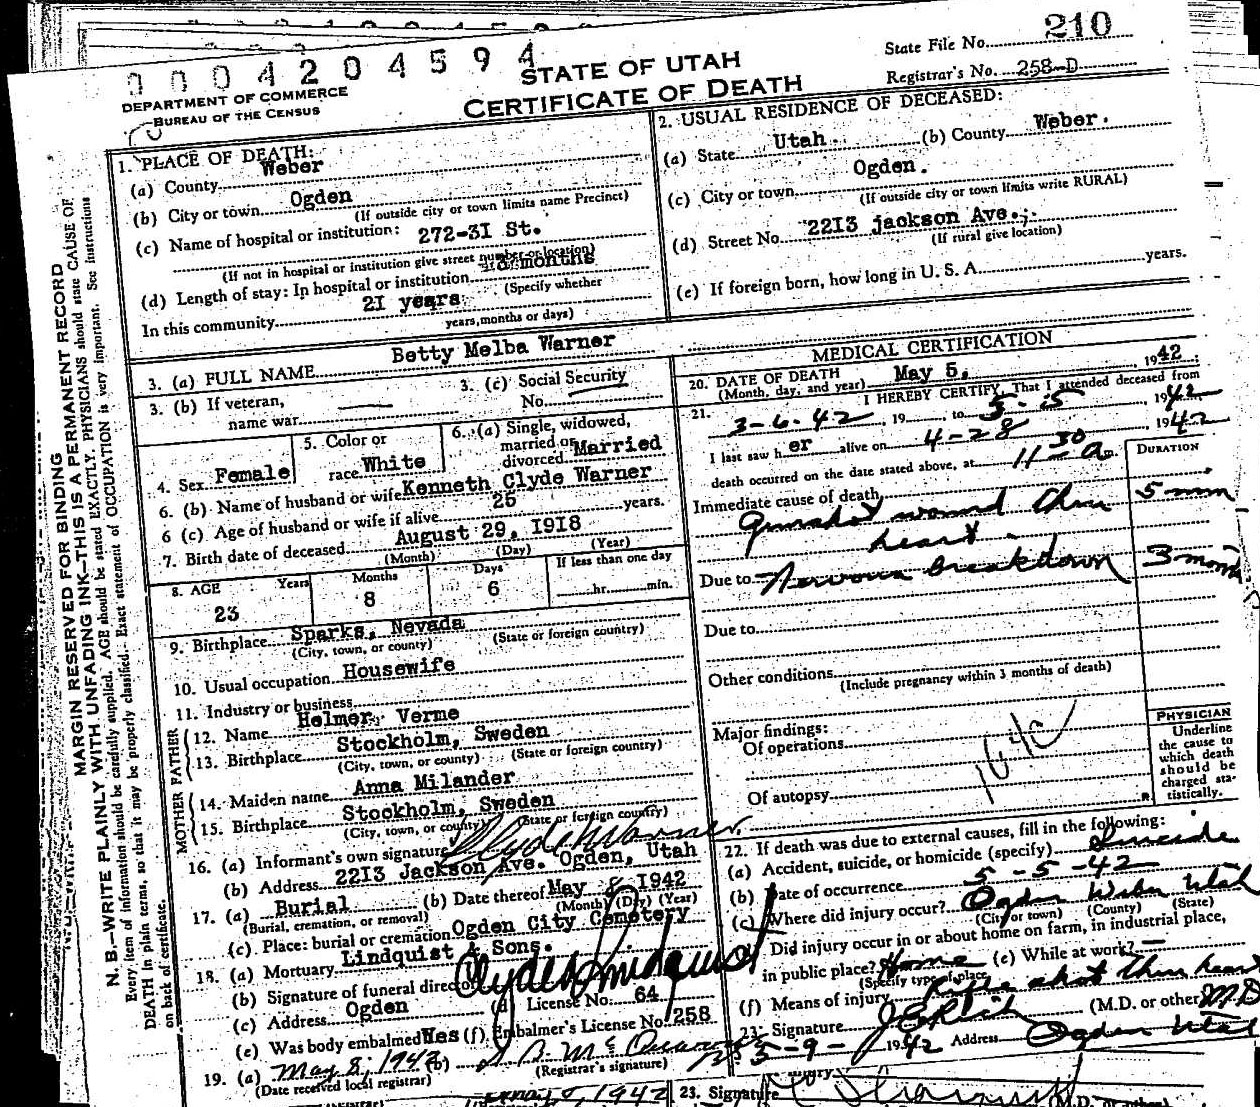 0004204594
STATE OF UTAH
CERTIFICATE OF DEATH
State File No. 210
Registrar's No. 258-D
DEPARTMENT OF COMMERCE
BUREAU OF THE CENSUS
MARGIN RESERVED FOR BINDING
N. B.—WRITE PLAINLY WITH UNFADING INK—THIS IS A PERMANENT RECORD
Every item of information should be carefully supplied. AGE should be stated EXACTLY. PHYSICIANS should state CAUSE OF
DEATH in plain terms, so that it may be properly classified. Exact statement of OCCUPATION is very important. See Instructions
on back of certificate.
1. PLACE OF DEATH:
(a) County Weber
(b) City or town Ogden
(If outside city or town limits name Precinct)
(c) Name of hospital or institution: 272-31 St.
(If not in hospital or institution give street number or location)
(d) Length of stay: In hospital or institution months
(Specify whether
In this community 21 years
years, months or days)
2. USUAL RESIDENCE OF DECEASED:
(a) State Utah (b) County Weber.
(c) City or town Ogden.
(If outside city or town limits write RURAL)
(d) Street No. 2213 jackson Ave.
(If rural give location)
(e) If foreign born, how long in U. S. A. years.
3. (a) FULL NAME Betty Melba Warner
3. (b) If veteran,
name war
3. (c) Social Security
No.
4. Sex Female
5. Color or
race White
6. (a) Single, widowed,
married or
divorced Married
6. (b) Name of husband or wife Kenneth Clyde Warner
6 (c) Age of husband or wife if alive 25 years.
7. Birth date of deceased August 29, 1918
(Month) (Day) (Year)
8. AGE Years Months Days If less than one day
23 8 6 hr. min.
9. Birthplace Sparks, Nevada
(City, town, or county) (State or foreign country)
10. Usual occupation Housewife
11. Industry or business
FATHER
12. Name Helmer Verme
13. Birthplace Stockholm, Sweden
(City, town, or county) (State or foreign country)
MOTHER
14. Maiden name Anna Milander
15. Birthplace Stockholm, Sweden
(City, town, or county) (State or foreign country)
16. (a) Informant's own signature Clyde Warner
(b) Address 2213 Jackson Ave. Ogden, Utah
17. (a) Burial (b) Date thereof May 8 1942
(Burial, cremation, or removal) (Month) (Day) (Year)
(c) Place: burial or cremation Ogden City Cemetery
18. (a) Mortuary Lindquist & Sons.
(b) Signature of funeral director Clyde Lindquist
(c) Address Ogden (d) License No. 64
(e) Was body embalmed Yes (f) Embalmer's License No. 258
19. (a) May 8, 1942 (b)
(Date received local registrar) (Registrar's signature)
MEDICAL CERTIFICATION
20. DATE OF DEATH May 5, 1942
(Month, day, and year)
21. I HEREBY CERTIFY, That I attended deceased from
3-6-42, 19 to 5-5, 1942
I last saw her alive on 4-28 1942
death occurred on the date stated above, at 11-30 a m.
DURATION
Immediate cause of death
Gunshot wound thru 5 min
heart.
Due to Nervous breakdown 3 months
Due to
Other conditions
(Include pregnancy within 3 months of death)
Major findings:
Of operations
Of autopsy
164c
PHYSICIAN
Underline
the cause to
which death
should be
charged sta-
tistically.
22. If death was due to external causes, fill in the following:
(a) Accident, suicide, or homicide (specify) Suicide
(b) Date of occurrence 5-5-42
(c) Where did injury occur? Ogden Weber Utah
(City or town) (County) (State)
Did injury occur in or about home on farm, in industrial place,
in public place? Home (e) While at work? —
(Specify type of place
(f) Means of injury Rifle shot thru heart
23. Signature (M.D. or other) M.D.
5-9-1942 Address Ogden Utah
1942
23. Signature
(M.D. or other)